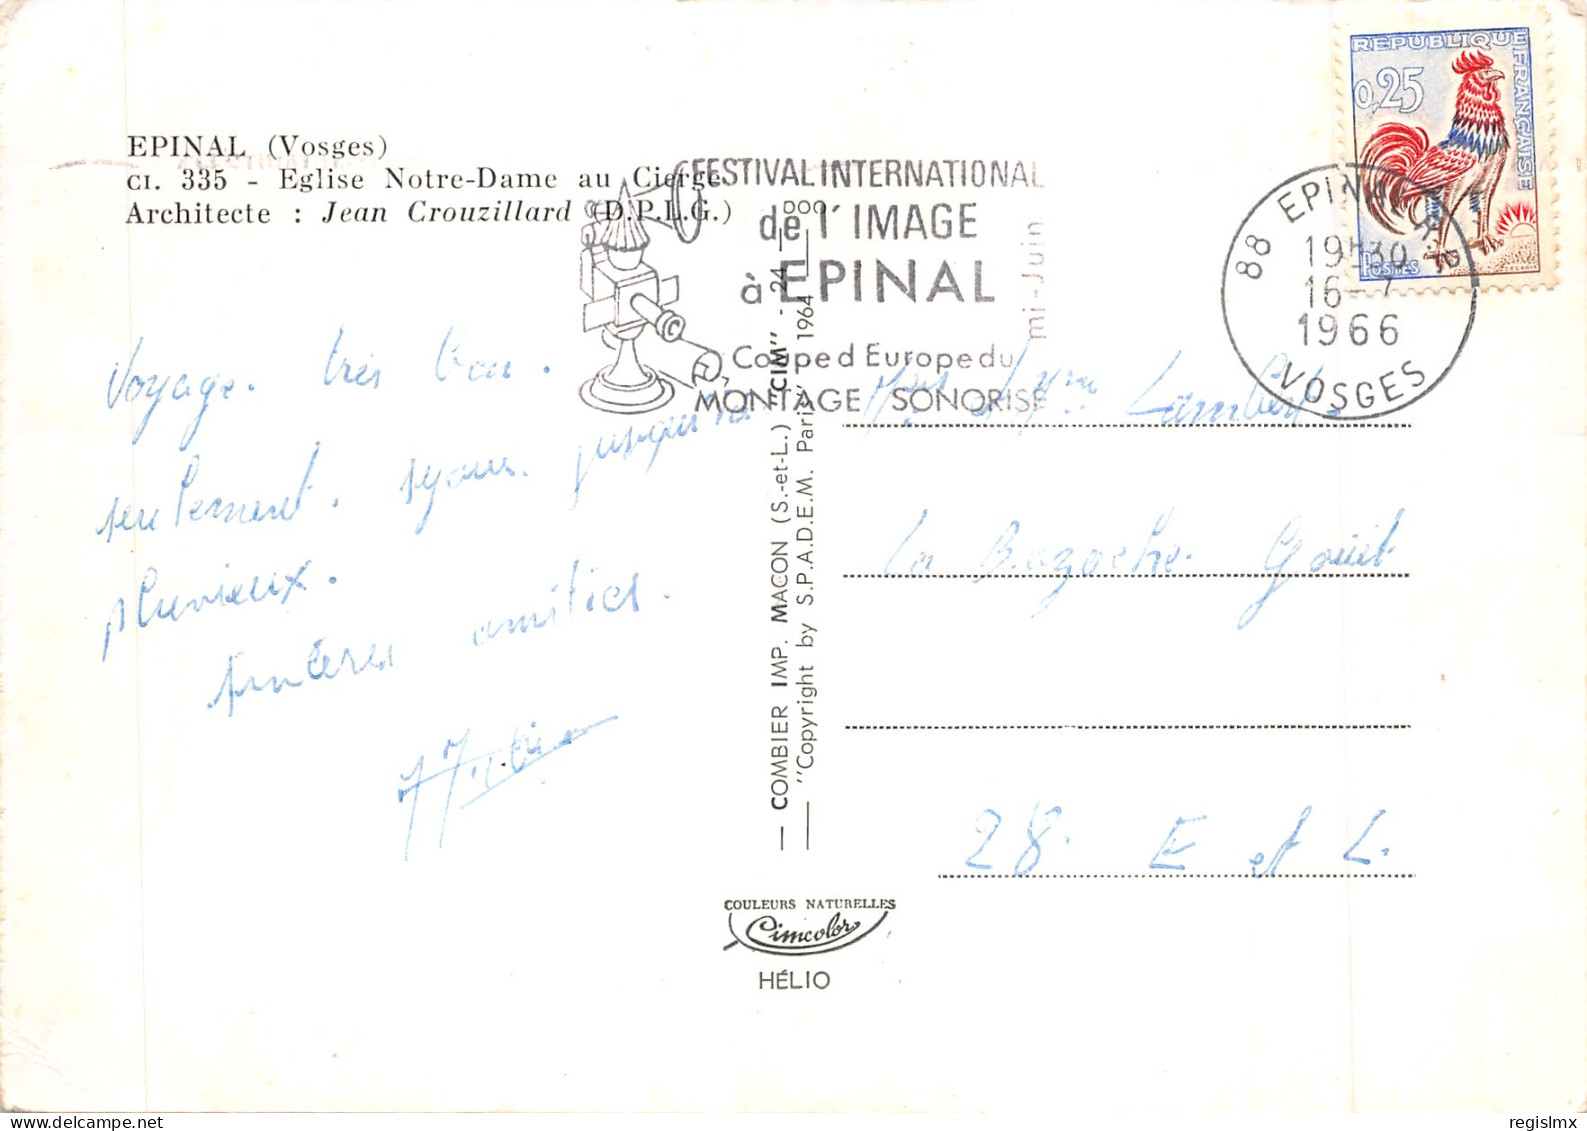 EPINAL (Vosges)
CI. 335 - Eglise Notre-Dame au Cierge
Architecte : Jean Crouzillard (D.P.L.G.)
FESTIVAL INTERNATIONAL
de l'IMAGE
à EPINAL
mi-Juin
Coupe d Europe du
MONTAGE SONORISE
REPUBLIQUE FRANÇAISE
0,25
POSTES
DECARIS
88 EPINAL R.P.
19H30
16-7
1966
VOSGES
Voyage. très bon.
seulement. séjour. jusqu'ici
pluvieux.
sincères amitiés.
Lambert
La Bazoche Gouët
28. E et L.
— COMBIER IMP. MACON (S.-et-L.) "CIM" - 24 —
— "Copyright by S.P.A.D.E.M. Paris" 1964 —
COULEURS NATURELLES
Cimcolor
HÉLIO
regislmx @ delcampe.net